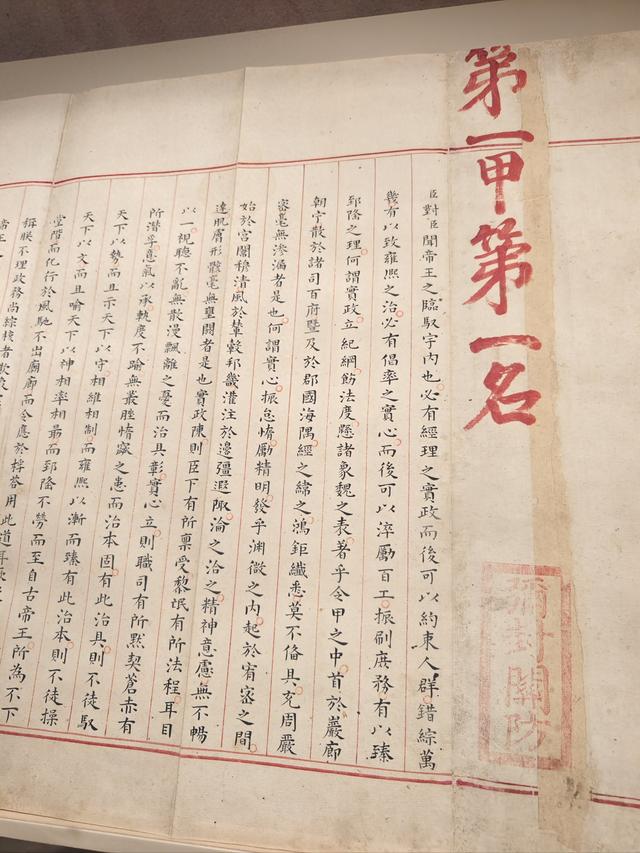 第一甲第一名
彌封關防
臣對臣聞帝王之臨馭宇內也必有經理之實政而後可以約束人群錯綜萬
幾有以致雍熙之治必有倡率之實心而後可以淬勵百工振刷庶務有以臻
郅隆之理何謂實政立紀綱飭法度懸諸象魏之表著乎令甲之中首於巖廊
朝宁散於諸司百府暨及於郡國海隅經之緯之鴻鉅纖悉莫不備具充周嚴
密毫無滲漏者是也何謂實心振怠惰勵精明發乎淵微之內起於宥密之間
始於宮闈穆清風於輦轂邦畿灌注於邊疆遐陬淪之洽之精神意慮無不暢
達肌膚形骸毫無壅閼者是也實政陳則臣下有所稟受黎氓有所法程耳目
以一視聽不亂無散漫飄離之憂而治具彰實心立則職司有所默契蒼赤有
所潛孚意氣以承執度不踰無叢脞惰窳之患而治本固有此治具則不徒馭
天下以勢而且示天下以守相維相制而雍熙以漸而臻有此治本則不徒操
天下以文而且喻天下以神相率相勗而郅隆不勞而至自古帝王所為不下
堂階而化行於風馳不出廟廊而令應於桴答用此道耳厥
稱朕不理政務尚綜核者欺